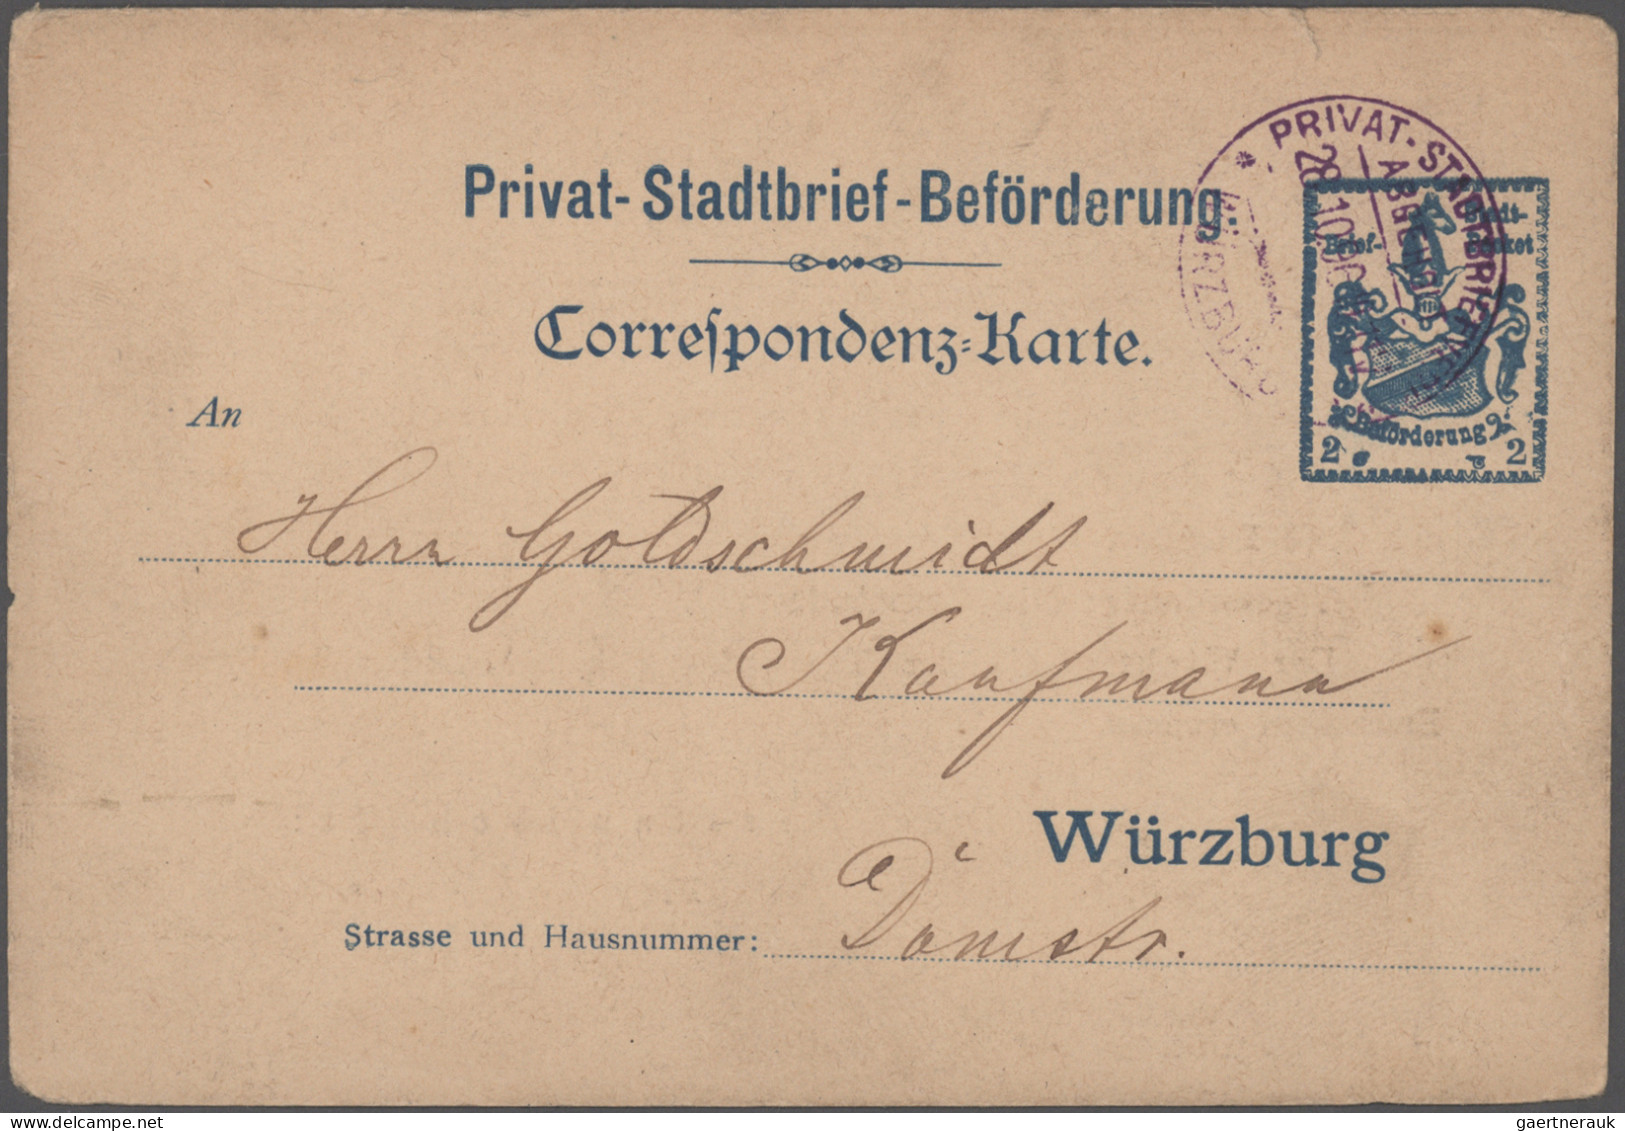 Privat-Stadtbrief-Beförderung.
Correspondenz-Karte.
PRIVAT-STADTBRIEF
WÜRZBURG
Stadt-
Brief-
Beförderung
2 2
An
Herrn Goldschmidt
Kaufmann
Würzburg
Strasse und Hausnummer: Domstr.
gaertnerauk